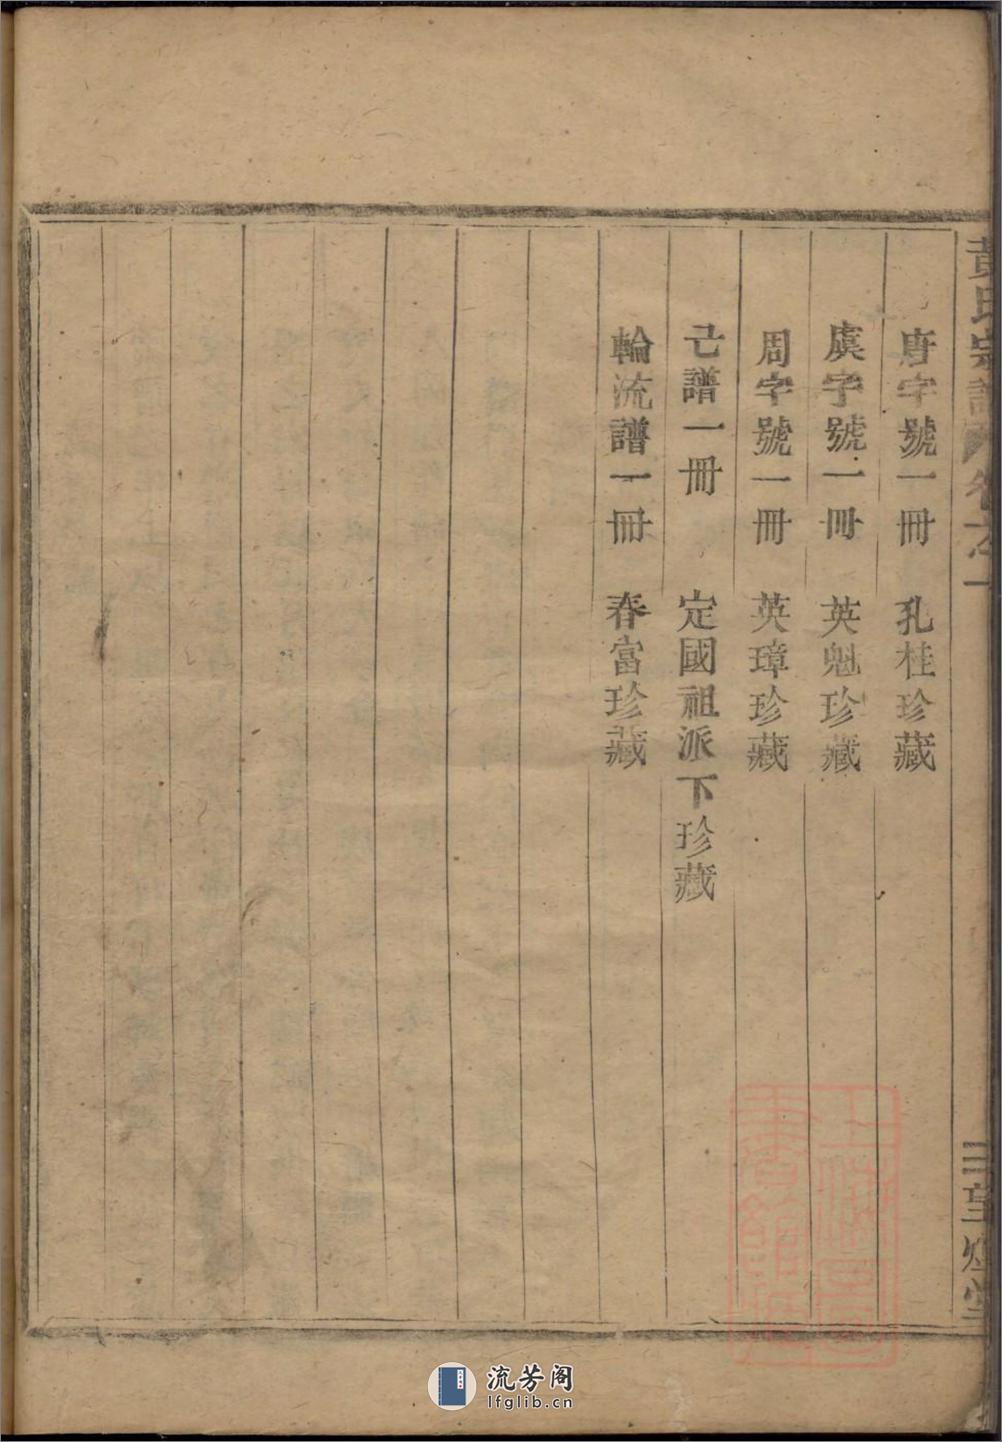 黃氏宗譜 卷之一
三望堂
唐字號一冊 孔桂珍藏
虞字號一冊 英魁珍藏
周字號一冊 英璋珍藏
己譜一冊 定國祖派下珍藏
輪流譜一冊 春富珍藏
上海圖書館藏
流芳阁
lfglib.cn